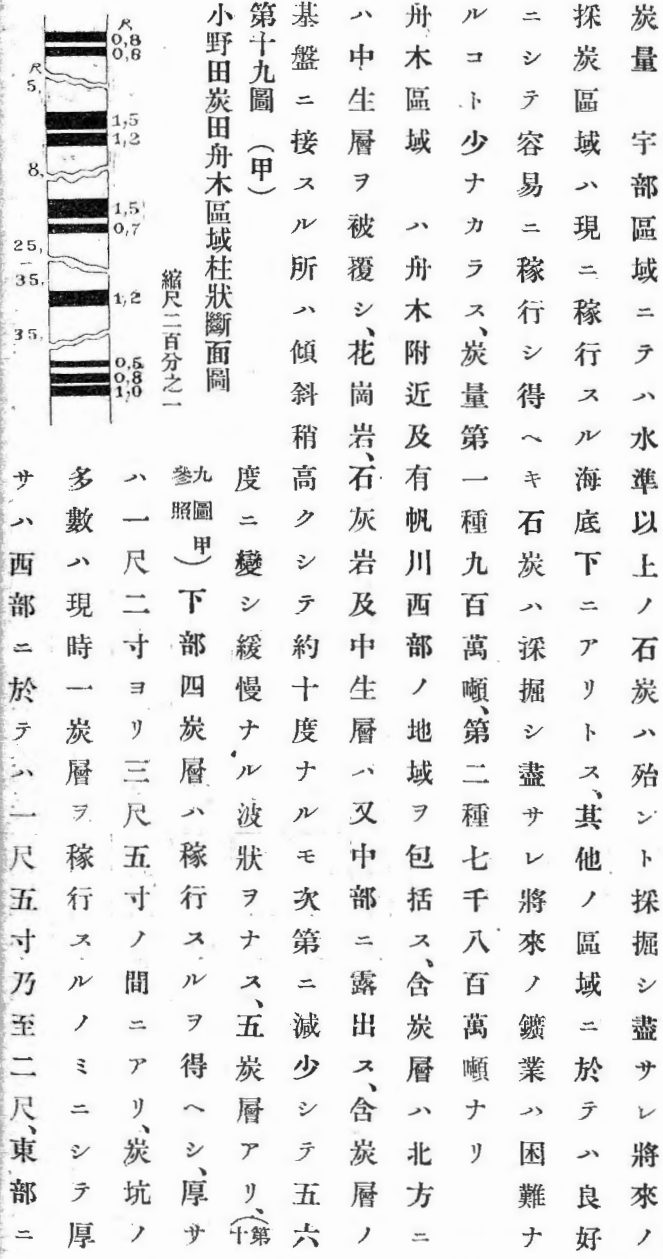 炭量　宇部區域ニテハ水準以上ノ石炭ハ殆ント採掘シ盡サレ將來ノ
採炭區域ハ現ニ稼行スル海底下ニアリトス、其他ノ區域ニ於テハ良好
ニシテ容易ニ稼行シ得ヘキ石炭ハ採掘シ盡サレ將來ノ鑛業ハ困難ナ
ルコト少ナカラス、炭量第一種九百萬噸、第二種七千八百萬噸ナリ
舟木區域　ハ舟木附近及有帆川西部ノ地域ヲ包括ス、含炭層ハ北方ニ
ハ中生層ヲ被覆シ、花崗岩、石灰岩及中生層ハ又中部ニ露出ス、含炭層ノ
基盤ニ接スル所ハ傾斜稍高クシテ約十度ナルモ次第ニ減少シテ五六
度ニ變シ緩慢ナル波狀ヲナス、五炭層アリ、(第十
九圖甲參照)下部四炭層ハ稼行スルヲ得ヘシ、厚サ
ハ一尺二寸ヨリ三尺五寸ノ間ニアリ、炭坑ノ
多數ハ現時一炭層ヲ稼行スルノミニシテ厚
サハ西部ニ於テハ一尺五寸乃至二尺、東部ニ
第十九圖 (甲)
小野田炭田舟木區域柱狀斷面圖
縮尺二百分之一
尺
0,8
0,6
尺
5,
1,5
1,2
8,
1,5
0,7
25,
35,
1,2
35,
0,5
0,8
1,0